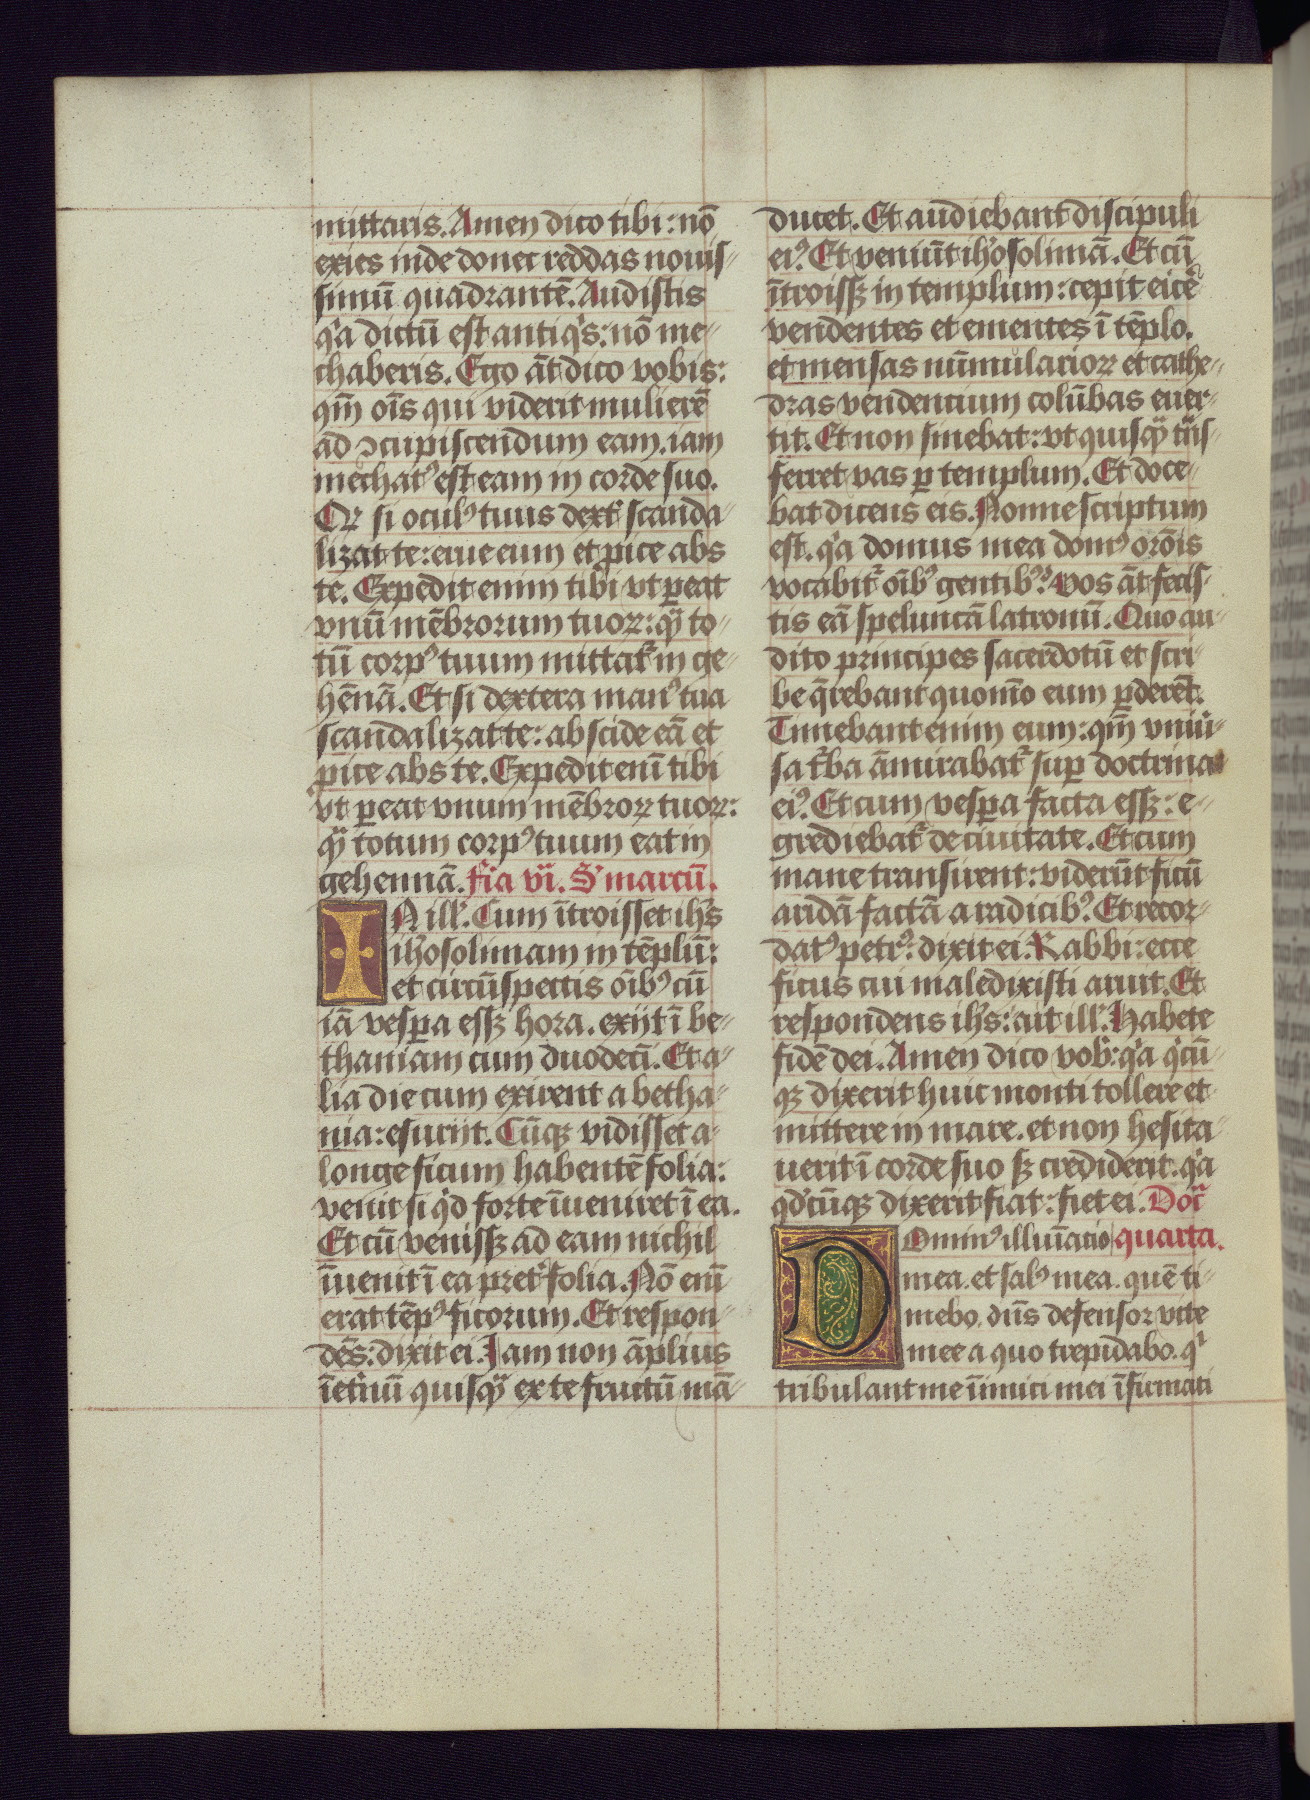 mittaris. Amen dico tibi: nō
exies inde donec reddas nouis-
simū quadrantē. Audistis
qͥa dictū est antiqͥs: nō me-
chaberis. Ego āt dico vobis:
qm̄ oīs qui viderit mulierē
ad ↄcupiscendum eam. iam
mechatꝰ est eam in corde suo.
Qꝛ si oculꝰ tuus dext̓ scanda-
lizat te: erue eum et ꝓice abs
te. Expedit enim tibi vt ꝑeat
vnū mēbrorum tuoꝝ: qͣꝫ to-
tū corpꝰ tuum mittat᷑ in ge-
hēnā. Et si dextera manꝰ tua
scandalizat te: abscide eā et
ꝓice abs te. Expedit enī tibi
vt ꝑeat vnum mēbroꝝ tuoꝝ:
qͣꝫ totum corpꝰ tuum eat in
gehennā. fīa vi. S̄ marcū.
IN ill̓. Cum ītroisset ih̓s
ih̓osolimam in tēplū:
et circūspectis oībꝰ cū
iā vesꝑa essꝫ hora. exijt ī be-
thaniam cum duodecī. Et a-
lia die cum exirent a betha-
nia: esurijt. Cūqꝫ vidisset a
longe ficum habentē folia:
venit si qͥd forte īueniret ī ea.
Et cū venissꝫ ad eam nichil
īuenit ī ea pret̓ folia. Nō enī
erat tēpꝰ ficorum. Et respon-
dēs: dixit ei. Jam non āplius
īet̓nū quisqͣꝫ ex te fructū mā-
ducet. Et audiebant discipuli
eiꝰ. Et veniūt ih̓osolimā. Et cū
ītroissꝫ in templum: cepit eicē-
vendentes et ementes ī tēplo.
et mensas nūmularioꝝ et cathe-
dras vendencium colūbas euer-
tit. Et non sinebat: vt quisqͣꝫ tͣns-
ferret vas ꝑ templum. Et doce-
bat dicens eis. Nonne scriptum
est. qͥa domus mea domꝰ orōis
vocabit᷑ oībꝰ gentibꝰ. Vos āt fecis-
tis eā speluncā latronū. Quo au-
dito principes sacerdotū et scri-
be q̄rebant quomō eum ꝑderēt.
Timebant enim eum: qm̄ vniu̓-
sa t̓ba āmirabat᷑ suꝑ doctrina
eiꝰ. Et cum vesꝑa facta essꝫ: e-
grediebat᷑ de ciuitate. Et cum
mane transirent: viderūt ficū
aridā factā a radicibꝰ. Et recor-
datꝰ petrꝰ. dixit ei. Rabbi: ecce
ficus cui maledixisti aruit. Et
respondens ih̓s: ait ill̓. Habete
fidē dei. Amen dico vob̓: qͥa qͥcū-
qꝫ dixerit huic monti tollere et
mittere in mare. et non hesita-
uerit ī corde suo sꝫ crediderit. qͥa
qd̓cūqꝫ dixerit fiat: fiet ei. Doc̄
Dominꝰ illuīatio quarta.
mea. et salꝰ mea. quē ti-
mebo. dn̄s defensor vite
mee a quo trepidabo. qͥ
tribulant me īimici mei īfirmati